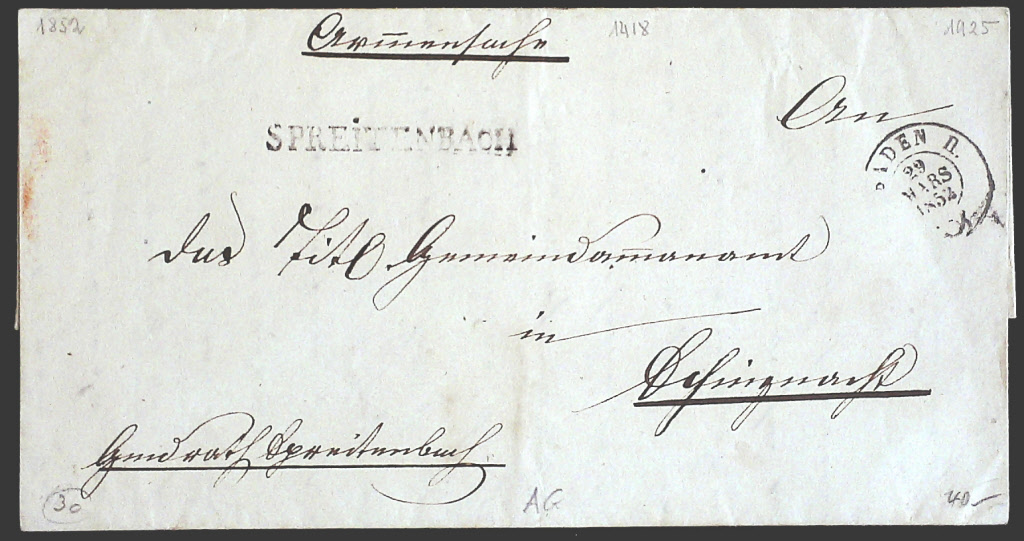 1852 1418 1925
Armensache
An
SPREITENBACH
BADEN II.
29
MARS
1852
das Titl Gemeindam̅anamt
in
Schinznacht
Gmdrath Spreitenbach.
30 AG 40.-